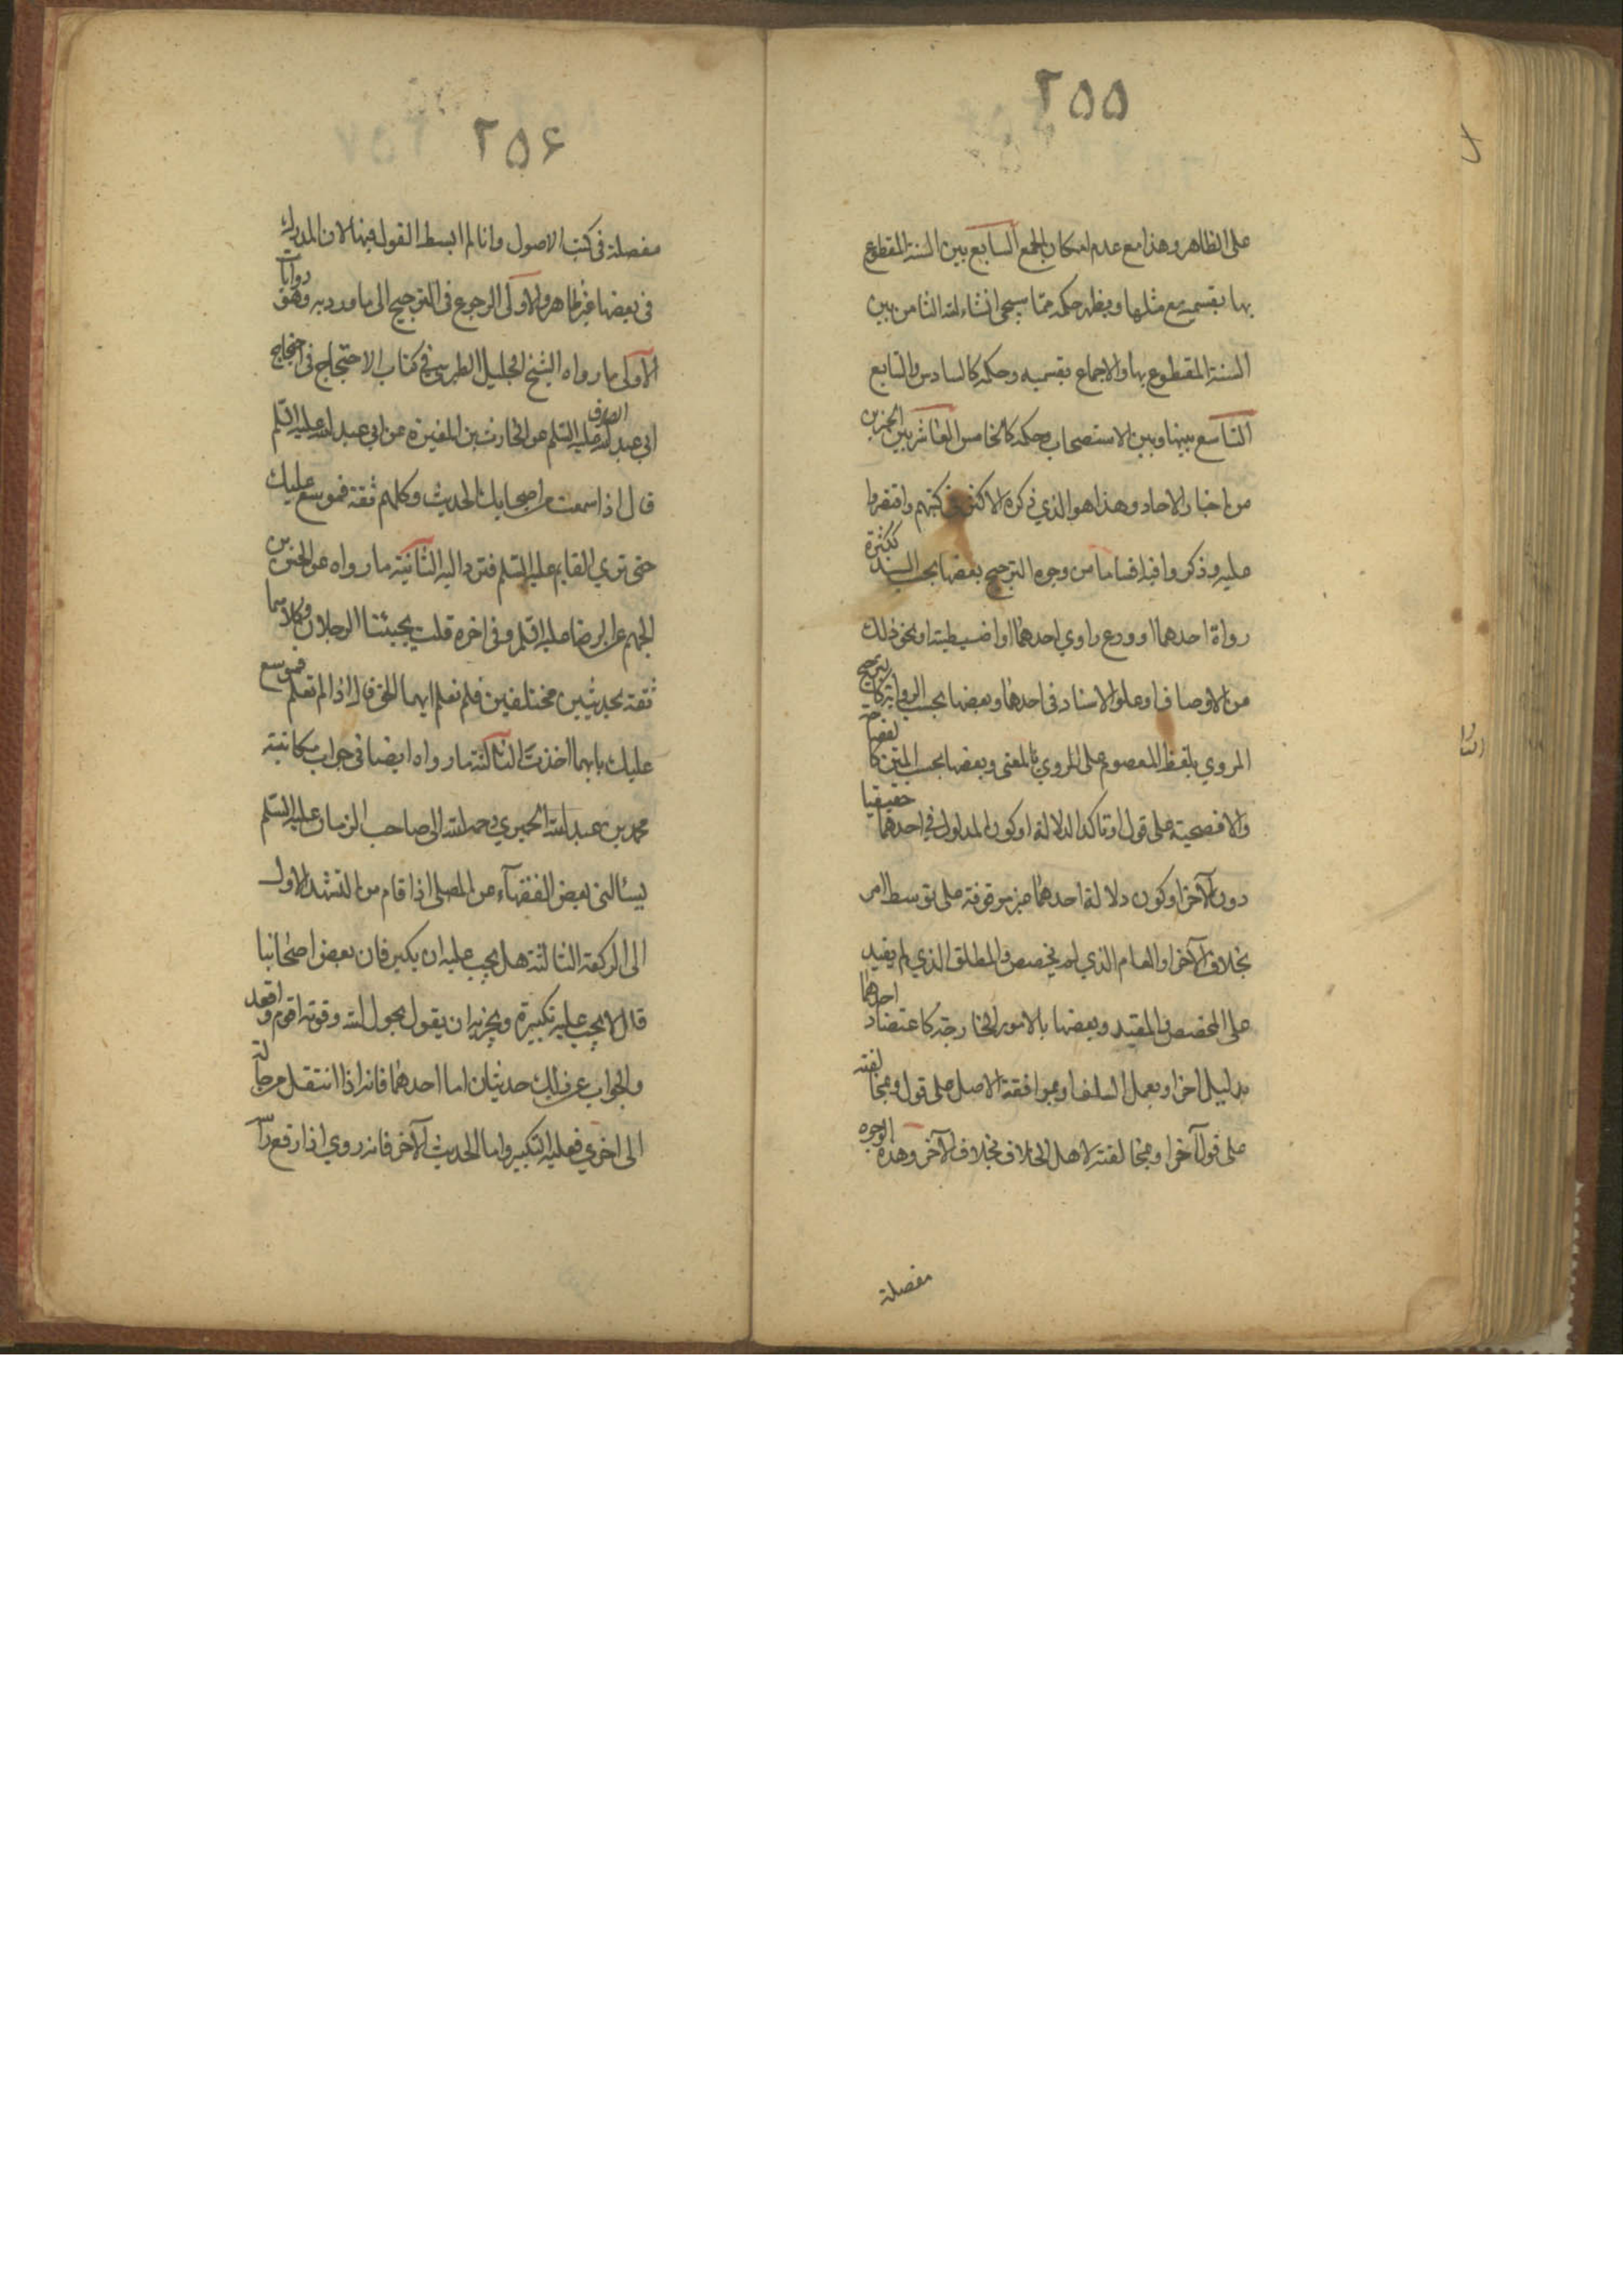 ٢٥٥
على الظاهر وهذا مع عدم امكان الجمع السابع بين السنة المقطوع
بها بقسميه مع مثلها ويظهر حكمه مما سيجئ انشاء الله الثامن بين
السنة المقطوع بها والاجماع بقسميه وحكمه كالسادس والسابع
التاسع بينها وبين الاستصحاب وحكمه كالخامس العاشر بين الخبرين
من اخبار الاحاد وهذا هو الذي ذكره الاكثر في كتبهم واقتصروا
عليه وذكروا فيه اقساما من وجوه الترجيح بعضها بحسب السند ككثرة
رواة احدهما او ورع راوي احدهما او اضبطيته او نحو ذلك
من الاوصاف او علو الاسناد في احدهما وبعضها بحسب الرواية كترجيح
المروي بلفظ المعصوم على المروي بالمعنى وبعضها بحسب المتن كالفصاحة
والافصحية على قول او تاكد الدلالة او كون المدلول في احدهما حقيقيا
دون الآخر او كون دلالة احدهما غير موقوفة على توسط امر
بخلاف الآخر او العام الذي لم يخصص والمطلق الذي لم يقيد
على المخصص والمقيد وبعضها بالامور الخارجة كاعتضاد احدهما
بدليل اخر او بعمل السلف او بموافقة الاصل على قول وبمخالفته
على قول آخر او بمخالفته لاهل الخلاف بخلاف الآخر وهذه الوجوه
مفصلة
٢٥۶
مفصلة في كتب الاصول وانا لم ابسط القول فيها لان المدرك
في بعضها غير ظاهر والاولى الرجوع في الترجيح الى ما ورد به روايات وهي
الاولى ما رواه الشيخ الجليل الطبرسي في كتاب الاحتجاج في احتجاج
ابي عبد الله الصادق عليه السلم عن الحارث بن المغيرة عن ابي عبد الله عليه السلم
قال اذا سمعت من اصحابك الحديث وكلهم ثقة فموسع عليك
حتى تري القايم عليه السلم فترد اليه الثانية ما رواه عن الحسن بن
الجهم عن الرضا عليه السلم وفي اخره قلت يجيئنا الرجلان وكلاهما
ثقة بحديثين مختلفين فلم نعلم ايهما الحق قال اذا لم تعلم فموسع
عليك بايهما اخذت الثالثة ما رواه ايضا في جواب مكاتبة
محمد بن عبد الله الحميري رحمه الله الى صاحب الزمان عليه السلم
يسئالني بعض الفقهآء عن المصلي اذا قام من التشهد الاول
الى الركعة الثالثة هل يجب عليه ان يكبر فان بعض اصحابنا
قال لا يجب عليه تكبيرة ويجزيه ان يقول بحول الله وقوته اقوم واقعد
والجواب عن ذلك حديثان اما احدهما فانه اذا انتقل من حالة
الى اخري فعليه التكبير واما الحديث الآخر فانه روي اذا رفع راسه